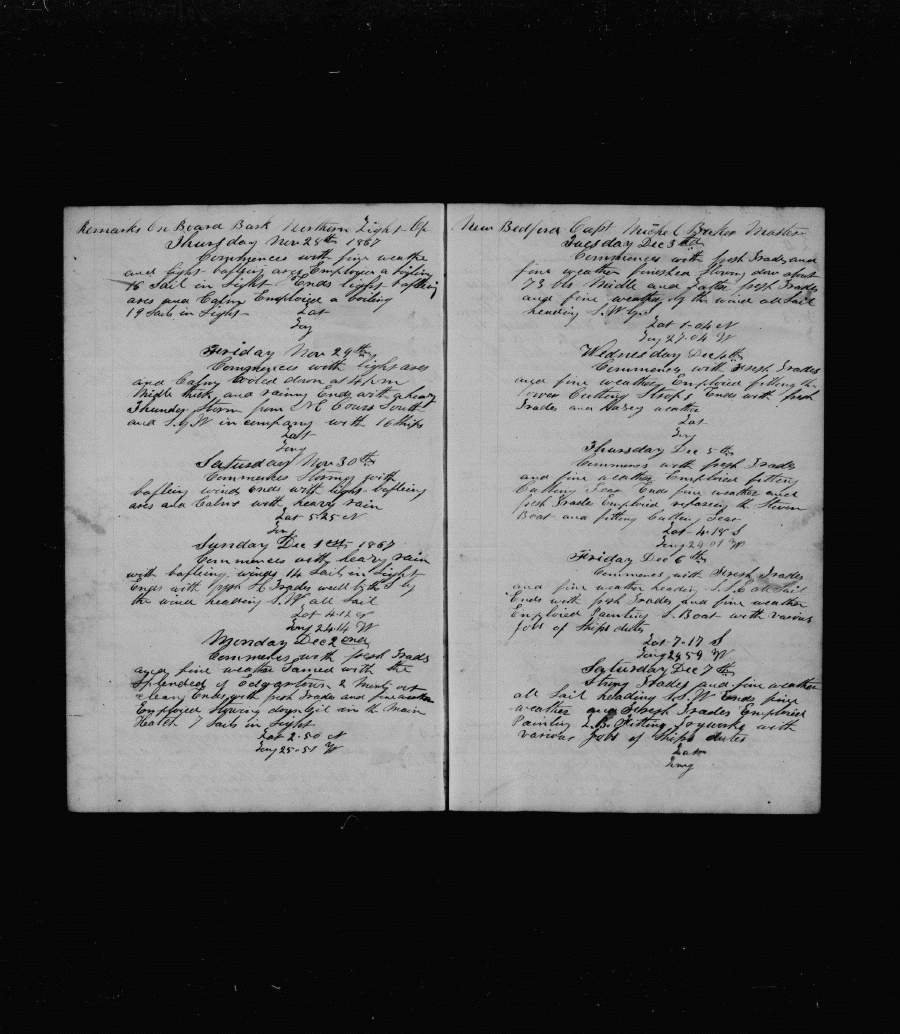 Remarks On Board Bark Northern Light Of
Thursday Nov 28th 1867
Commences with fine weathe
and light bafling airs Employed a boiling
16 Sail in Sight Ends light bafling
ares and Calms Employed a boiling
19 Sails in Sight Lat
Long
Friday Nov 29th
Commences with light ares
and Calms Cooled down at 4 pm
Middle thick and rainy Ends with a heavy
Thunder Storm from NE Cours South
and S.by W in company with 16 Ships
Latt
Long
Saturday Nov 30th
Commences Stormy with
bafling winds ends with light bafling
ares and Calms with heavy rain
Lat 5-25 N
Long
Sunday Dec 1st 1867
Commences with heavy rain
with bafling winds 14 Sails in Sight
Ends with fresh Trades well to the S by
the wind heading S.W all Sail
Lat 4-12 N
Long 24-14 W
Monday Dec 2ond
Commences with fresh Trads
and fine weather Gamed with the
Splended of Edgartown 2 Months out
clean Ends with fresh Trades and fine weather
Employed Stowing down Oil in the Main
Hatch 7 Sails in Sight
Lat 2-50 N
Long 25-51 W
New Bedford Capt Baker Master
Tuesday Dec 3rd
Commences with fresh Trades and
fine weather finished Stowing dow about
73 bls Middle and Latter fresh Trades
and fine weather by the wind all Sail
heading S.W by S
Lat 1-04 N
Long 27-04 W
Wednesday Dec 4th
Commences with Fresh Trades
and fine weather Employed fitting the
lower Cutting Strops Ends with fresh
Trades and Hasey weather
Lat
Long
Thursday Dec 5th
Commences with fresh Trades
and fine weather Employed fitting
Cutting Gear Ends fine weather and
fresh Trades Employed repairing the
Boat and fitting Cutting Gear
Lat 4-18 S
Long 29-01 W
Friday Dec 6th
Commences with Fresh Trades
and fine weather heading all Sail
Ends with fresh Trades and fine weather
Employed Painting S.Boat with various
Jobs of Ships duties
Lat 7-17 S
Long 29 59 W
Saturday Dec 7th
Strong Trades and fine weather
all Sail heading S by W Ends fine
weather and Fresh Trades Employed
Painting Fitting with
various Jobs of Ships duties
Lat
Long